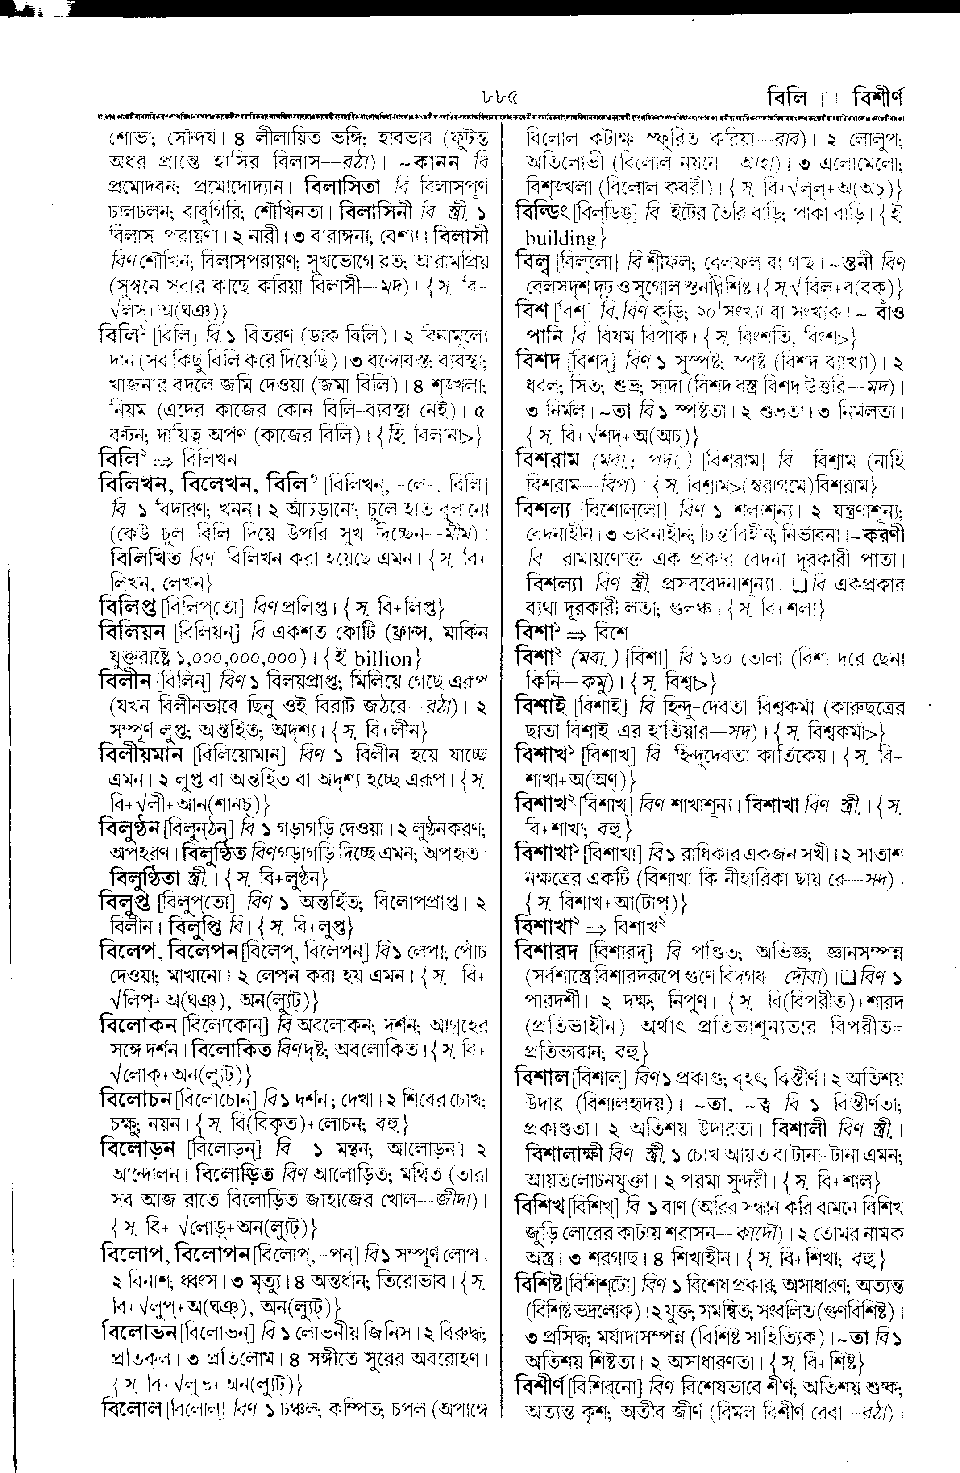 ৮৮৫
বিলি || বিশীর্ণ
শোভা; সৌন্দর্য। ৪ লীলায়িত ভঙ্গি; হাবভাব (ফুটন্ত
অধর প্রান্তে হাসির বিলাস—রঠা)। ~কানন বি
প্রমোদবন; প্রমোদোদ্যান। বিলাসিতা বি বিলাসপূর্ণ
চালচলন; বাবুগিরি; শৌখিনতা। বিলাসিনী বি স্ত্রী. ১
বিলাস পরায়ণা। ২ নারী। ৩ বারাঙ্গনা; বেশ্যা। বিলাসী
বিণ শৌখিন; বিলাসপরায়ণ; সুখভোগে রত; আরামপ্রিয়
(সুস্বনে সবার কাছে করিয়া বিলাসী—মদ)। {স. বি-
√লস্+অ(ঘঞ্)}
বিলি১ [বিলি] বি ১ বিতরণ (ডাক বিলি)। ২ বিনামূল্যে
দান (সব কিছু বিলি করে দিয়েছি)। ৩ বন্দোবস্ত; ব্যবস্থা;
খাজনার বদলে জমি দেওয়া (জমা বিলি)। ৪ শৃঙ্খলা;
নিয়ম (এদের কাজের কোন বিলি-ব্যবস্থা নেই)। ৫
বণ্টন; দায়িত্ব অর্পণ (কাজের বিলি)। {হি. বিলানা>}
বিলি২ ⇒ বিলিখন
বিলিখন, বিলেখন, বিলি২ [বিলিখন্, -লে-, বিলি]
বি ১ বিদারণ; খনন। ২ আঁচড়ানো; চুলে হাত বুলানো
(কেউ চুল বিলি দিয়ে উপরি সুখ দিচ্ছেন—মীম)।
বিলিখিত বিণ বিলিখন করা হয়েছে এমন। {স. বি+
লিখন, লেখন}
বিলিপ্ত [বিলিপ্‌তো] বিণ প্রলিপ্ত। {স. বি+লিপ্ত}
বিলিয়ন [বিলিয়ন্] বি একশত কোটি (ফ্রান্স, মার্কিন
যুক্তরাষ্ট্রে ১,০০০,০০০,০০০)। {ই billion}
বিলীন [বিলিন্] বিণ ১ বিলয়প্রাপ্ত; মিলিয়ে গেছে এরূপ
(যখন বিলীনভাবে ছিনু ওই বিরাট জঠরে—রঠা)। ২
সম্পূর্ণ লুপ্ত; অন্তর্হিত; অদৃশ্য। {স. বি+লীন}
বিলীয়মান [বিলিয়োমান্] বিণ ১ বিলীন হয়ে যাচ্ছে
এমন। ২ লুপ্ত বা অন্তর্হিত বা অদৃশ্য হচ্ছে এরূপ। {স.
বি+√লী+আন(শানচ্)}
বিলুণ্ঠন [বিলুন্‌ঠন্] বি ১ গড়াগড়ি দেওয়া। ২ লুণ্ঠনকরণ;
অপহরণ। বিলুণ্ঠিত বিণ গড়াগড়ি দিচ্ছে এমন; অপহৃত।
বিলুণ্ঠিতা স্ত্রী.। {স. বি+লুণ্ঠন}
বিলুপ্ত [বিলুপ্‌তো] বিণ ১ অন্তর্হিত; বিলোপপ্রাপ্ত। ২
বিলীন। বিলুপ্তি বি। {স. বি+লুপ্ত}
বিলেপ, বিলেপন [বিলেপ্, বিলেপন্] বি ১ লেপা; পোঁচ
দেওয়া; মাখানো। ২ লেপন করা হয় এমন। {স. বি+
√লিপ্+অ(ঘঞ্), অন(ল্যুট)}
বিলোকন [বিলোকোন্] বি অবলোকন; দর্শন; আগ্রহের
সঙ্গে দর্শন। বিলোকিত বিণ দৃষ্ট; অবলোকিত। {স. বি+
√লোক+অন(ল্যুট)}
বিলোচন [বিলোচোন্] বি ১ দর্শন; দেখা। ২ শিবের চোখ;
চক্ষু; নয়ন। {স. বি(বিকৃত)+লোচন; বহু}
বিলোড়ন [বিলোড়ন্] বি ১ মন্থন; আলোড়ন। ২
আন্দোলন। বিলোড়িত বিণ আলোড়িত; মথিত (তারা
সব আজ রাতে বিলোড়িত জাহাজের খোল—জীদা)।
{স. বি+√লোড়+অন(ল্যুট)}
বিলোপ, বিলোপন [বিলোপ্, -পন্] বি ১ সম্পূর্ণ লোপ।
২ বিনাশ; ধ্বংস। ৩ মৃত্যু। ৪ অন্তর্ধান; তিরোভাব। {স.
বি+√লুপ্+অ(ঘঞ্), অন(ল্যুট)}
বিলোভন [বিলোভন্] বি ১ লোভনীয় জিনিস। ২ বিরুদ্ধ;
প্রতিকূল। ৩ প্রতিলোম। ৪ সঙ্গীতে সুরের অবরোহণ।
{স. বি+√লুভ্+অন(ল্যুট)}
বিলোল [বিলোল্] বিণ ১ চঞ্চল; কম্পিত; চপল (অপাঙ্গে
বিলোল কটাক্ষ স্ফুরিত করিয়া—রাব)। ২ লোলুপ;
অতিলোভী (বিলোল নয়নে—আহা)। ৩ এলোমেলো;
বিশৃঙ্খলা (বিলোল কবরী)। {স. বি+√লুল্+অ(অচ্)}
বিল্ডিং [বিল্‌ডিঙ্] বি ইটের তৈরি বাড়ি; পাকা বাড়ি। {ই
building}
বিল্ব [বিল্‌লো] বি শ্রীফল; বেলফল বা গাছ। ~স্তনী বিণ
বেলসদৃশ দৃঢ় ও সুগোল স্তনবিশিষ্ট। {স. √বিল+ব(বক্)}
বিশ [বিশ্] বি, বিণ কুড়ি; ২০ সংখ্যা বা সংখ্যক। ~ বাঁও
পানি বি বিষম বিপাক। {স. বিংশতি, বিংশ>}
বিশদ [বিশদ্] বিণ ১ সুস্পষ্ট; স্পষ্ট (বিশদ ব্যাখ্যা)। ২
ধবল; সিত; শুভ্র; সাদা (বিশদ বস্ত্র বিশদ উত্তরি—মদ)।
৩ নির্মল। ~তা বি ১ স্পষ্টতা। ২ শুভ্রতা। ৩ নির্মলতা।
{স. বি+√শদ্+অ(অচ)}
বিশরাম (মবা.; পদা.) [বিশরাম] বি বিশ্রাম (নাহি
বিশরাম—বিপ)। {স. বিশ্রাম>(স্বরাগমে)বিশরাম}
বিশল্য [বিশোল্‌লো] বিণ ১ শল্যশূন্য। ২ যন্ত্রণাশূন্য;
বেদনাহীন। ৩ ভাবনাহীন; চিন্তাবিহীন; নির্ভাবনা। ~করণী
বি রামায়ণোক্ত এক প্রকার বেদনা দূরকারী পাতা।
বিশল্যা বিণ স্ত্রী. প্রসববেদনাশূন্যা। ❑ বি একপ্রকার
ব্যথা দূরকারী লতা; গুলঞ্চ। {স. বি+শল্য}
বিশা১ ⇒ বিশে
বিশা২ (মবা.) [বিশা] বি ১৬০ তোলা (বিশা দরে ছেনা
কিনি—কমু)। {স. বিশ্ব>}
বিশাই [বিশাই] বি হিন্দু-দেবতা বিশ্বকর্মা (কারুছত্রের
ছাতা বিশাই এর হাতিয়ার—সদ)। {স. বিশ্বকর্মা>}
বিশাখ১ [বিশাখ্] বি হিন্দুদেবতা কার্তিকেয়। {স. বি-
শাখা+অ(অণ্)}
বিশাখ২ [বিশাখ্] বিণ শাখাশূন্য। বিশাখা বিণ স্ত্রী.। {স.
বি+শাখা; বহু}
বিশাখা১ [বিশাখা] বি ১ রাধিকার একজন সখী। ২ সাতাশ
নক্ষত্রের একটি (বিশাখা কি নীহারিকা ছায় রে—সদ)।
{স. বিশাখ+আ(টাপ্)}
বিশাখা২ ⇒ বিশাখ২
বিশারদ [বিশারদ্] বি পণ্ডিত; অভিজ্ঞ; জ্ঞানসম্পন্ন
(সর্বশাস্ত্রে বিশারদরূপে গুণে বিদগধ—দৌবা)। ❑ বিণ ১
পারদর্শী। ২ দক্ষ; নিপুণ। {স. বি(বিপরীত)+শারদ
(প্রতিভাহীন) অর্থাৎ প্রতিভাশূন্যতার বিপরীত=
প্রতিভাবান; বহু}
বিশাল [বিশাল্] বিণ ১ প্রকাণ্ড; বৃহৎ; বিস্তীর্ণ। ২ অতিশয়
উদার (বিশালহৃদয়)। ~তা, ~ত্ব বি ১ বিস্তীর্ণতা;
প্রকাণ্ডতা। ২ অতিশয় উদারতা। বিশালী বিণ স্ত্রী.।
বিশালাক্ষী বিণ স্ত্রী. ১ চোখ আয়ত বা টানা-টানা এমন;
আয়তলোচনযুক্তা। ২ পরমা সুন্দরী। {স. বি+শাল}
বিশিখ [বিশিখ্] বি ১ বাণ (অরির সন্ধান করি বামনে বিশিখ
জুড়ি লোরের কাটায় শরাসন—কাদৌ)। ২ তোমর নামক
অস্ত্র। ৩ শরগাছ। ৪ শিখাহীন। {স. বি+শিখা; বহু}
বিশিষ্ট [বিশিশ্‌টো] বিণ ১ বিশেষ প্রকার; অসাধারণ; অত্যন্ত
(বিশিষ্ট ভদ্রলোক)। ২ যুক্ত; সমন্বিত; সংবলিত (গুণবিশিষ্ট)।
৩ প্রসিদ্ধ; মর্যাদাসম্পন্ন (বিশিষ্ট সাহিত্যিক)। ~তা বি ১
অতিশয় শিষ্টতা। ২ অসাধারণতা। {স. বি+শিষ্ট}
বিশীর্ণ [বিশির্‌নো] বিণ বিশেষভাবে শীর্ণ; অতিশয় শুষ্ক;
অত্যন্ত কৃশ; অতীব জীর্ণ (বিমল বিশীর্ণ রেবা—রঠা)।